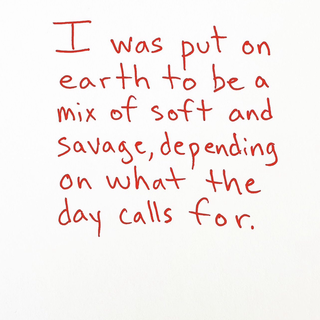 I was put on
earth to be a
mix of soft and
savage, depending
on what the
day calls for.